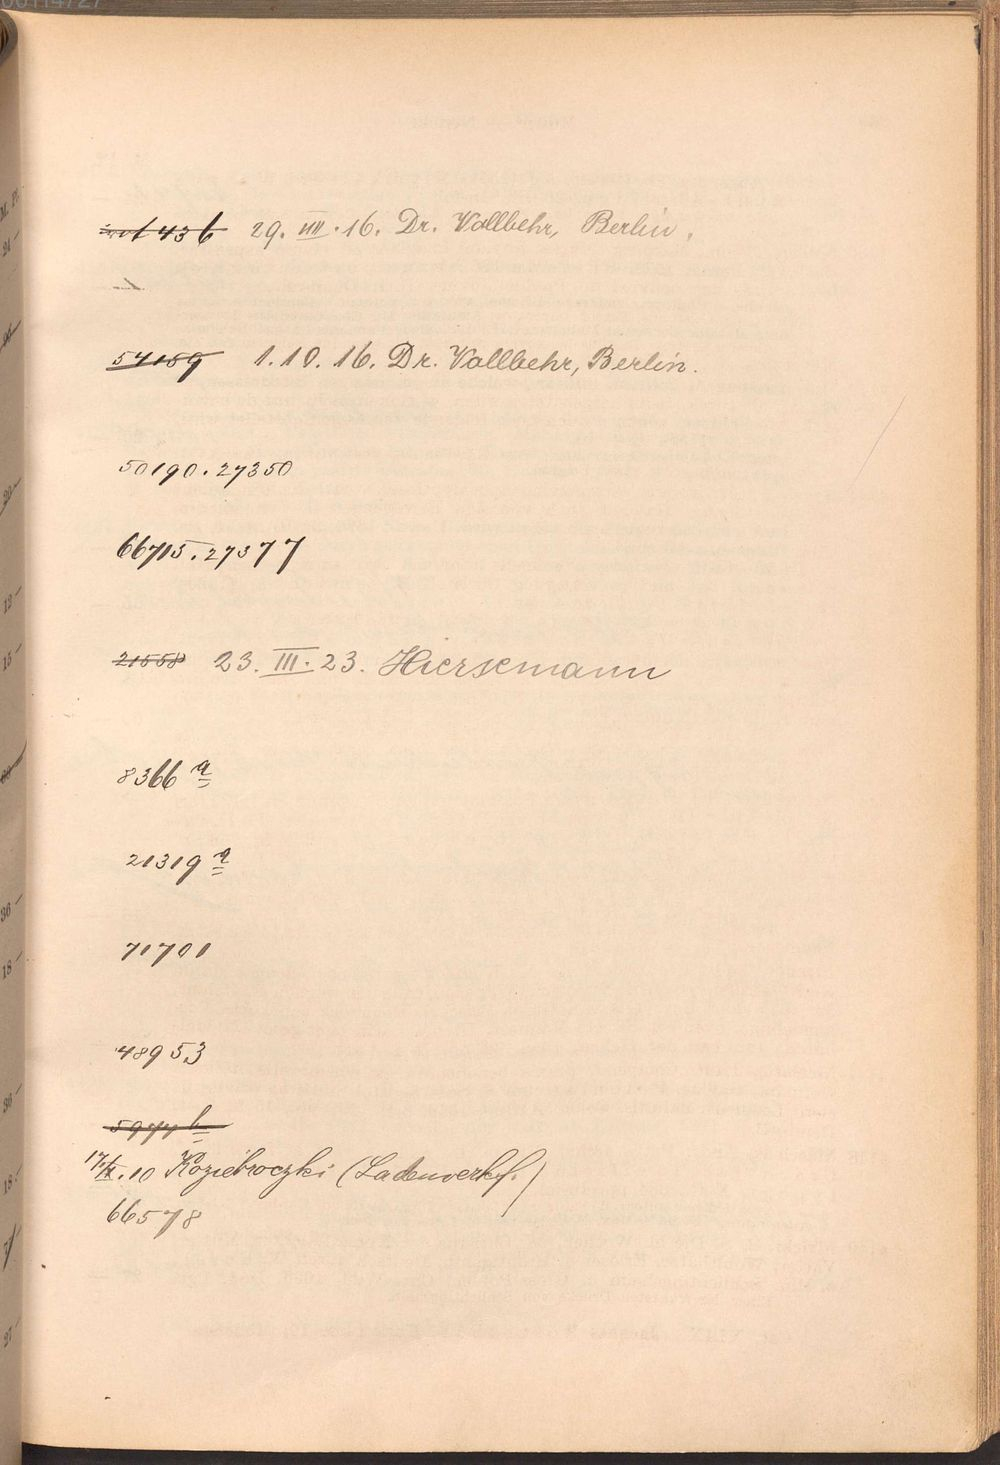 29. VIII. 16. Dr. Vollbehr, Berlin.
54169 1.10.16. Dr. Vollbehr, Berlin.
50190. 27350
66715. 27377
21558 23. III. 23. Hiersemann
8366 a
21319 a
71701
48953
5977 b
17/X. 10 Koziebroczki (Ladenverkf.)
66578